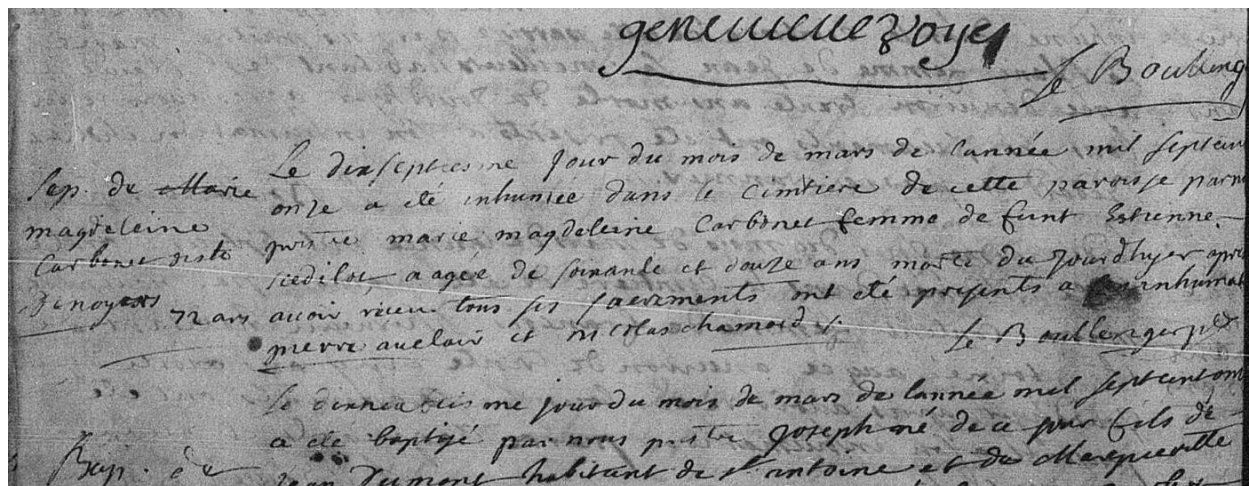 genevieve voyer
Le Boulleng
Sep. de Marie
magdeleine
Carbonet diste
Denoyers
72 ans
Le dixseptesme jour du mois de mars de lannée mil septcent
onze a été inhumée dans le cimtiere de cette paroisse par
prstre marie magdeleine Carbonet femme de funt Estienne
aagée de soixante et douze ans morte du jourdhyer apres
avoir receu tous ses sacrements ont été présents a inhumat
pierre auclair et nicolas chamard
Le Boullenger ptre
Le dixneufiesme jour du mois de mars de lannée mil septcent onze
a été baptisé par nous pstre Joseph né de ce jour fils de
Bap. de
Jean Dumont habitant de st antoine et de Marie